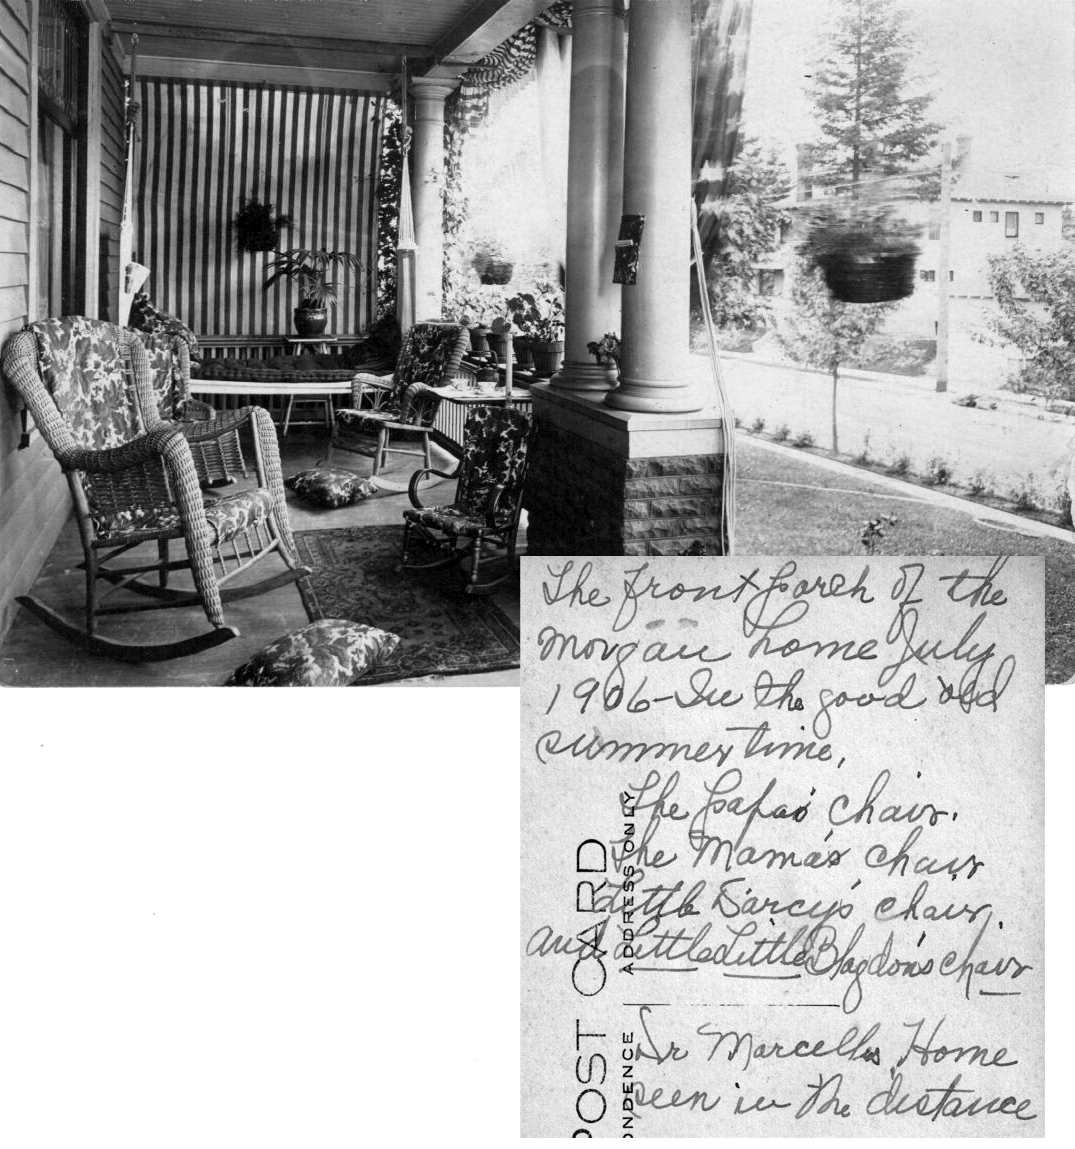 The front porch of the
Morgan home July
1906 - In the good old
summer time,
The papa's chair.
The Mama's chair
Little Darcy's chair,
and Little Little Blagdon's chair
Dr Marcellus Home
seen in the distance
POST CARD
ADDRESS ONLY
ONDENCE